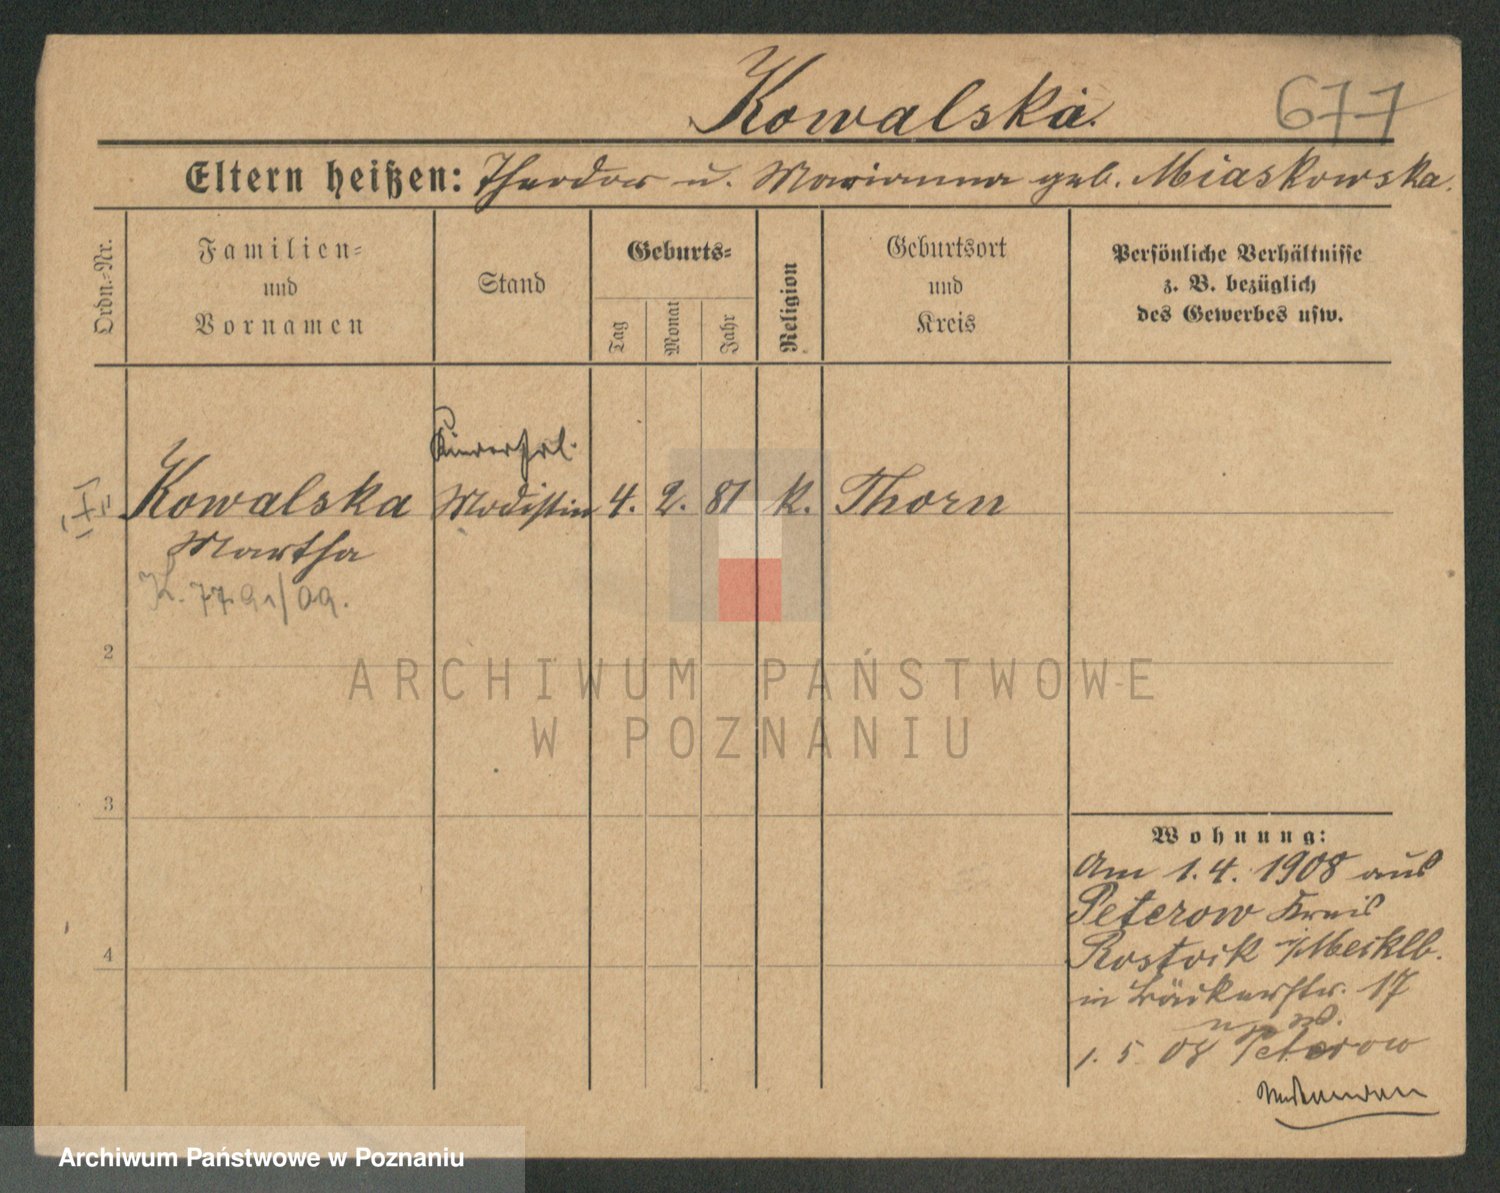 Kowalska.
677
Eltern heißen: Theodor u. Marianna geb. Miaskowska.
Ordn.-Nr.
Familien-
und
Vornamen
Stand
Geburts-
Tag
Monat
Jahr
Religion
Geburtsort
und
Kreis
Persönliche Verhältnisse
z. B. bezüglich
des Gewerbes usw.
Kinderfrl.
Kowalska Modistin 4. 2. 81 k. Thorn
Martha
K. 7791/09.
2
3
4
ARCHIWUM PAŃSTWOWE
W POZNANIU
Wohnung:
Am 1. 4. 1908 aus
Peterow Kreis
Rostock i/Mecklb.
in Bäckerstr. 17
1. 5. 08 Peterow
Archiwum Państwowe w Poznaniu